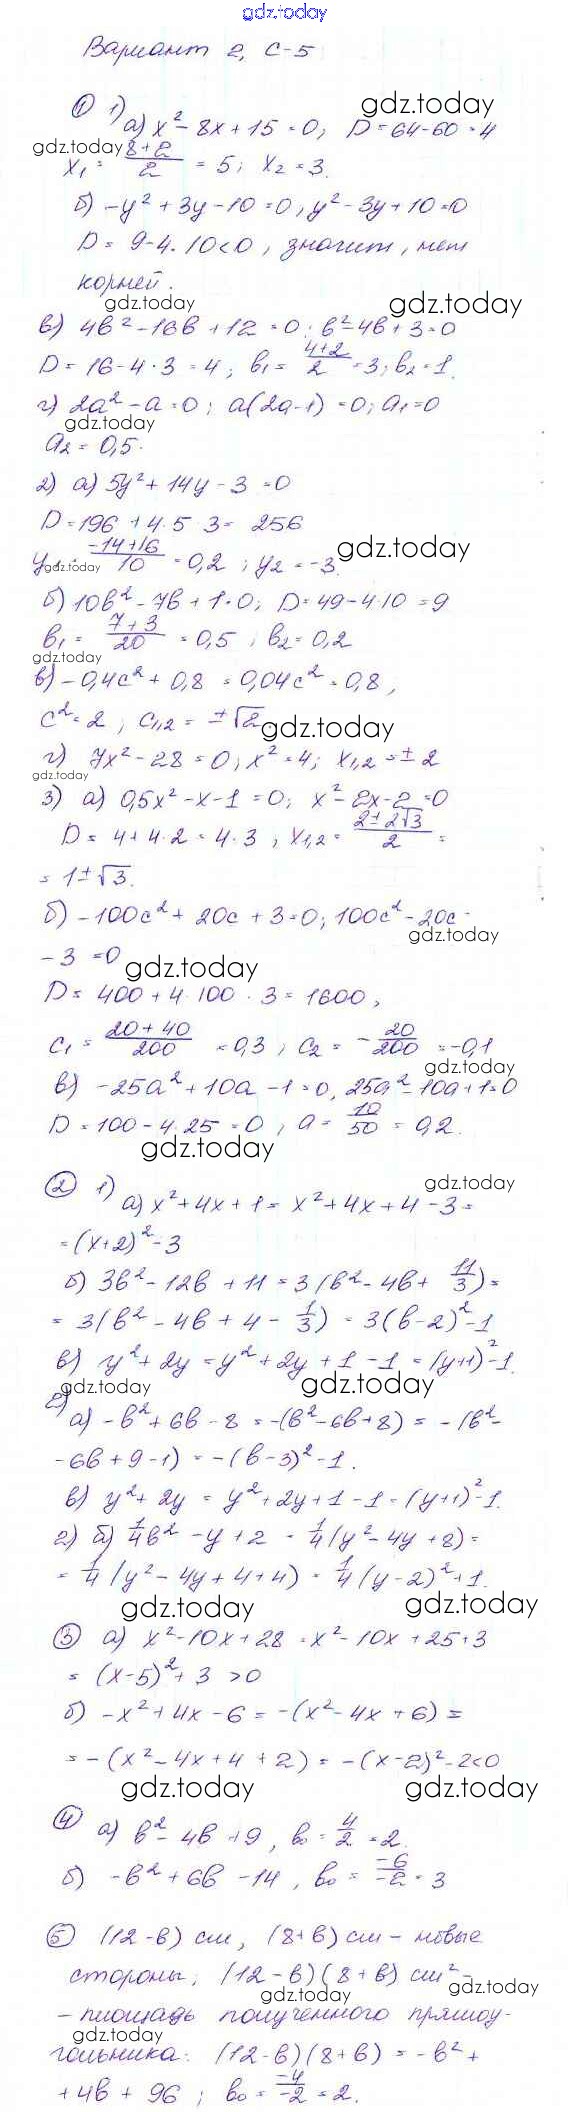 gdz.today
Вариант 2, С-5
① 1)
gdz.today
а) x² - 8x + 15 = 0; D = 64 - 60 = 4
gdz.today
x₁ = (8+2)/2 = 5; x₂ = 3.
б) -y² + 3y - 10 = 0, y² - 3y + 10 = 0
D = 9 - 4·10 < 0, значит, нет
корней.
gdz.today gdz.today
в) 4b² - 16b + 12 = 0; b² - 4b + 3 = 0
D = 16 - 4·3 = 4; b₁ = (4+2)/2 = 3; b₂ = 1.
г) 2a² - a = 0; a(2a-1) = 0; a₁ = 0
gdz.today
a₂ = 0,5.
2) а) 5y² + 14y - 3 = 0
D = 196 + 4·5·3 = 256
gdz.today
y₁ = (-14+16)/10 = 0,2; y₂ = -3.
gdz.today
б) 10b² - 7b + 1 = 0; D = 49 - 4·10 = 9
b₁ = (7+3)/20 = 0,5; b₂ = 0,2
gdz.today
в) -0,4c² + 0,8 = 0,04c² = 0,8,
c² = 2, c₁,₂ = ±√2
gdz.today
г) 7x² - 28 = 0; x² = 4; x₁,₂ = ± 2
gdz.today
3) а) 0,5x² - x - 1 = 0; x² - 2x - 2 = 0
D = 4 + 4·2 = 4·3, x₁,₂ = (2±2√3)/2 =
= 1±√3.
б) -100c² + 20c + 3 = 0; 100c² - 20c -
gdz.today
- 3 = 0
gdz.today
D = 400 + 4·100·3 = 1600,
c₁ = (20+40)/200 = 0,3; c₂ = -20/200 = -0,1
gdz.today
в) -25a² + 10a - 1 = 0, 25a² - 10a + 1 = 0
D = 100 - 4·25 = 0, a = 10/50 = 0,2.
gdz.today
② 1) gdz.today
а) x² + 4x + 1 = x² + 4x + 4 - 3 =
= (x+2)² - 3
б) 3b² - 12b + 11 = 3(b² - 4b + 11/3) =
= 3(b² - 4b + 4 - 1/3) = 3(b-2)² - 1
в) y² + 2y = y² + 2y + 1 - 1 = (y+1)² - 1.
2) gdz.today gdz.today
а) -b² + 6b - 8 = -(b² - 6b + 8) = -(b² -
- 6b + 9 - 1) = -(b-3)² - 1.
в) y² + 2y = y² + 2y + 1 - 1 = (y+1)² - 1.
2) б) 1/4b² - y + 2 = 1/4(y² - 4y + 8) =
= 1/4(y² - 4y + 4 + 4) = 1/4(y-2)² + 1.
gdz.today gdz.today
③ а) x² - 10x + 28 = x² - 10x + 25 + 3
= (x-5)² + 3 > 0
б) -x² + 4x - 6 = -(x² - 4x + 6) =
= -(x² - 4x + 4 + 2) = -(x-2)² - 2 < 0
gdz.today gdz.today
④ а) b² - 4b + 9, b₀ = 4/2 = 2.
б) -b² + 6b - 14, b₀ = -6/-2 = 3
⑤ (12-b) см, (8+b) см - новые
стороны; (12-b)(8+b) см² -
gdz.today gdz.today
- площадь полученного прямоу-
gdz.today
гольника: (12-b)(8+b) = -b² +
gdz.today
+ 4b + 96; b₀ = -4/-2 = 2.